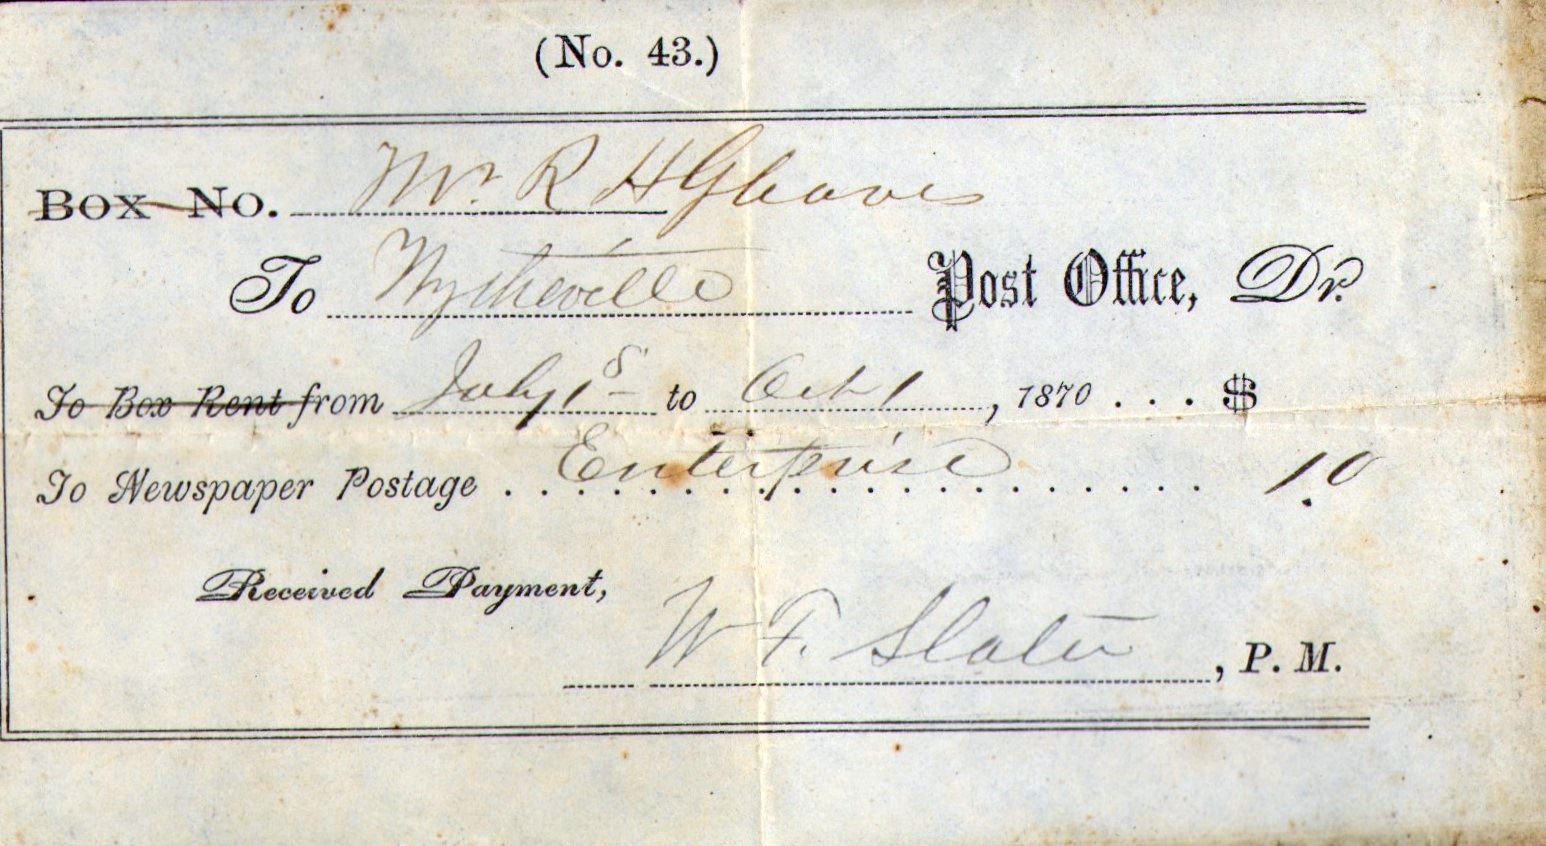 (No. 43.)
Box No. Mr. R H Gleaves
To Wytheville Post Office, Dr.
To Box Rent from July 1s to Oct 1, 1870 . . . $
To Newspaper Postage . . Enterprise . . . . . . . . 10
Received Payment,
W. F. Slater, P. M.